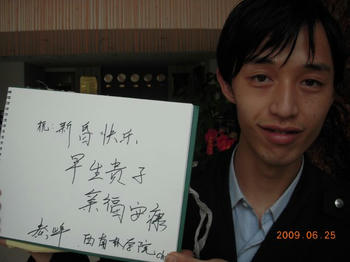 祝：新昏快乐
早生贵子
幸福安康
西南林学院
2009.06.25